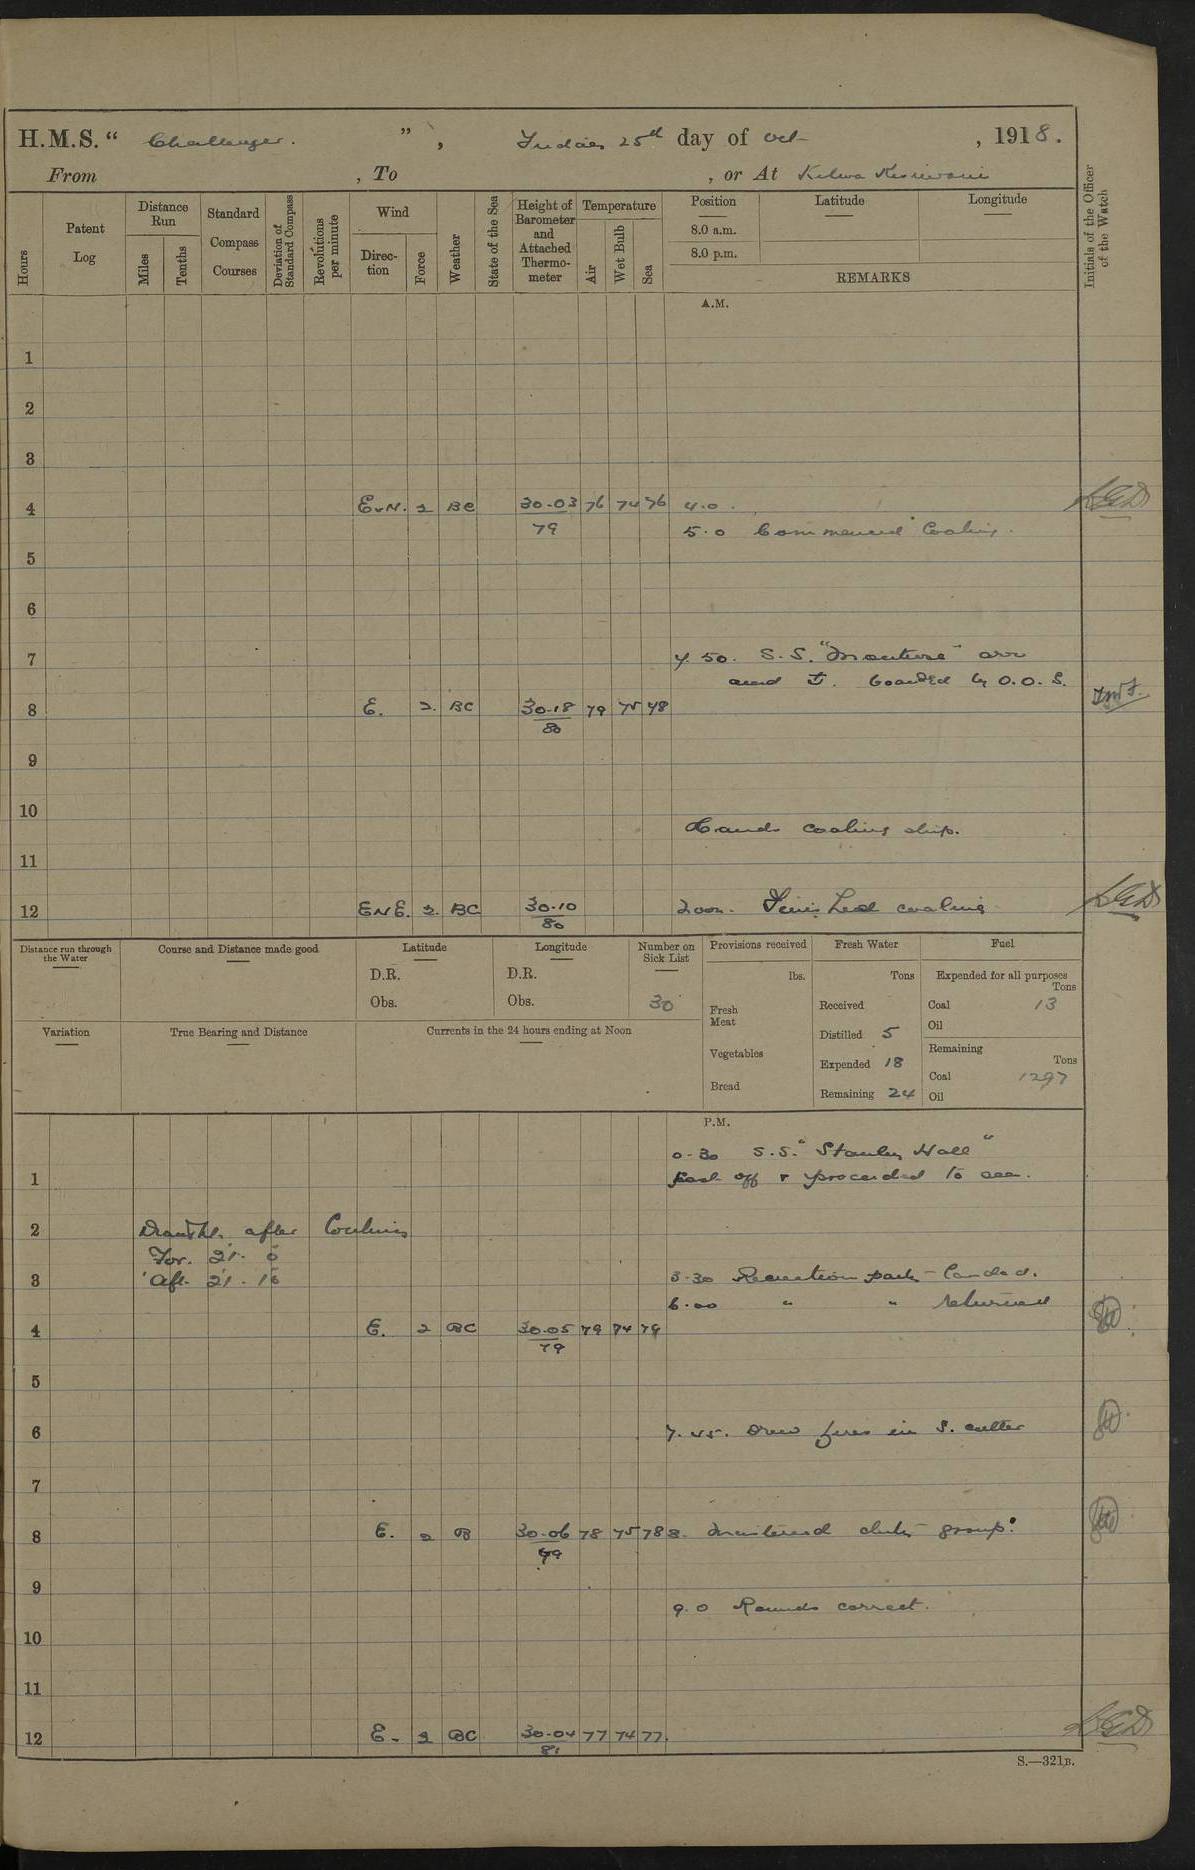 H.M.S. “ Challenger. ” , Friday 25th day of Oct , 1918.
From , To , or At Kilwa Kisiwani
Hours
Patent Log
Distance Run
Miles
Tenths
Standard Compass Courses
Deviation of Standard Compass
Revolutions per minute
Wind
Direction
Force
Weather
State of the Sea
Height of Barometer and Attached Thermometer
Temperature
Air
Wet Bulb
Sea
Position
8.0 a.m.
8.0 p.m.
Latitude
Longitude
REMARKS
Initials of the Officer of the Watch
A.M.
1
2
3
4 E.N. 2 BC 30.03 76 74 76 4.0
79 5.0 Commenced Coaling.
5
6
7 7.50. S.S. " " arr
and ⚓. boarded by O.O.S.
8 E. 2 BC 30.18 79 75 78
80
9
10
Hands coaling ship.
11
12 ENE. 2 BC 30.10 Noon. Finished coaling
80
Distance run through the Water
Course and Distance made good
Latitude
D.R.
Obs.
Longitude
D.R.
Obs.
Number on Sick List
30
Provisions received
lbs.
Fresh Meat
Vegetables
Bread
Fresh Water
Tons
Received
Distilled 5
Expended 18
Remaining 24
Fuel
Expended for all purposes
Tons
Coal 13
Oil
Remaining
Tons
Coal 1297
Oil
Variation
True Bearing and Distance
Currents in the 24 hours ending at Noon
P.M.
0.30 S.S. "Stanley Hall"
1 cast off & proceeded to sea.
2 Draught after Coaling
For. 21. 6
3 Aft. 21. 10 3.30 Recreation party landed.
6.00 " " returned
4 E. 2 BC 30.05 79 74 79
79
5
6 7.45. Drew fires in S. cutter
7
8 E. 2 B 30.06 78 75 78 8. Mustered duty group.
79
9
9.0 Rounds correct.
10
11
12 E. 2 BC 30.04 77 74 77.
81
S.—321B.